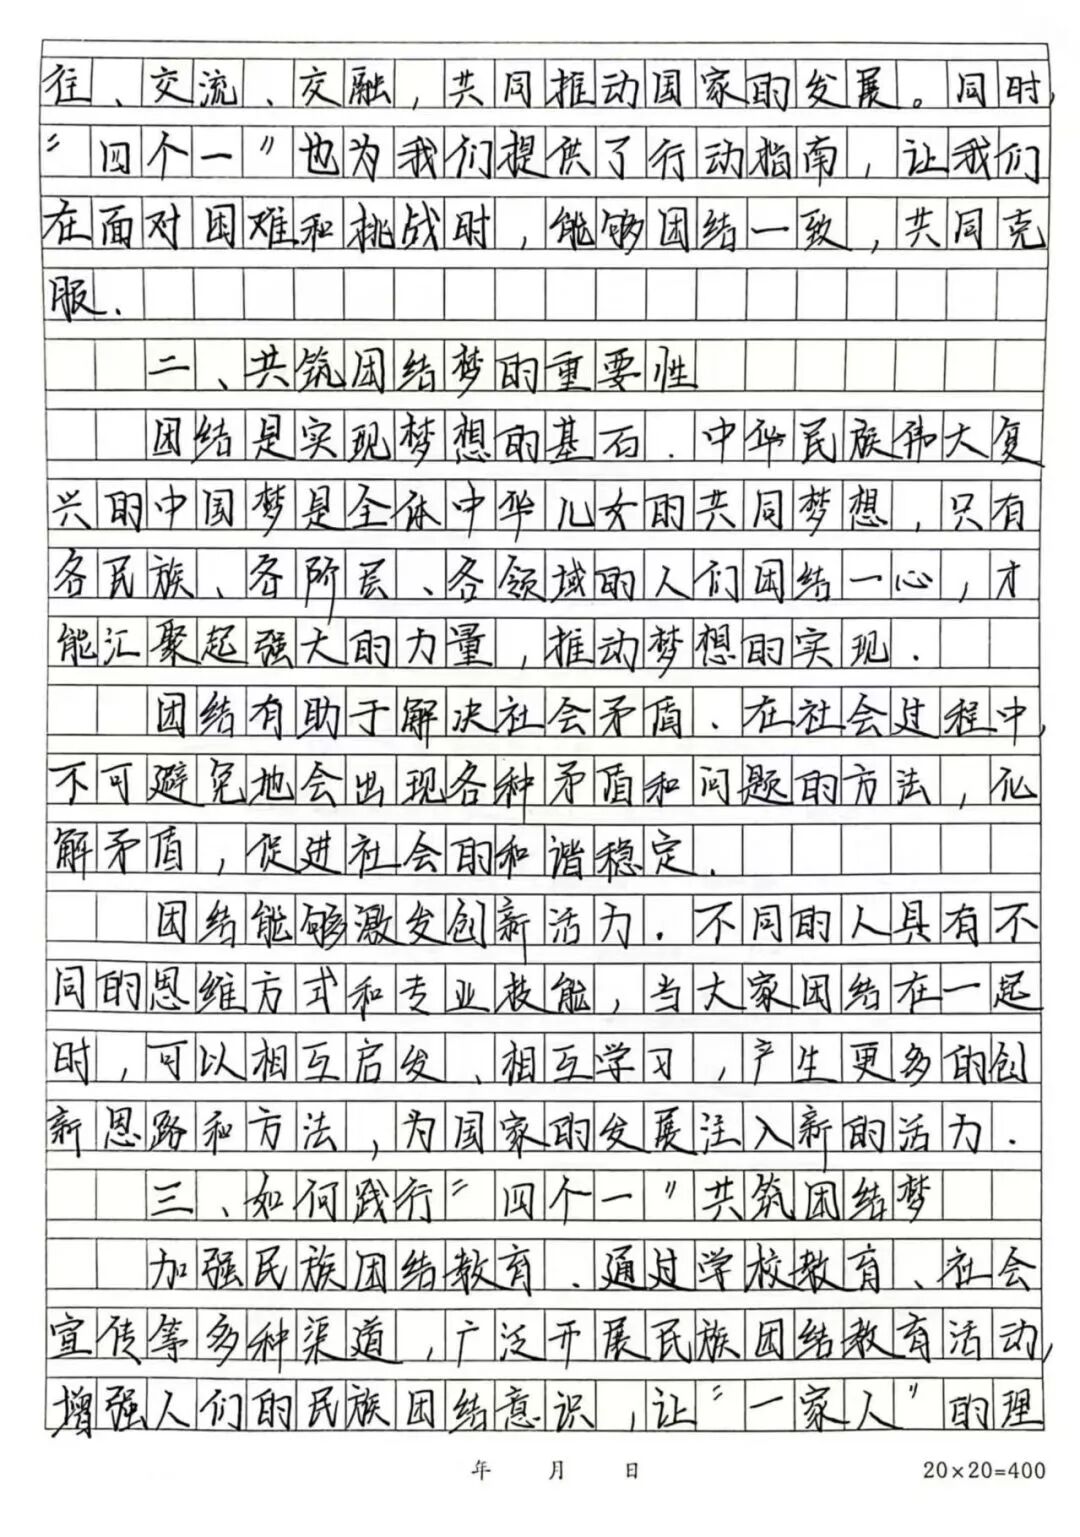 往、交流、交融，共同推动国家的发展。同时，
“四个一”也为我们提供了行动指南，让我们
在面对困难和挑战时，能够团结一致，共同克
服.
二、共筑团结梦的重要性
团结是实现梦想的基石.中华民族伟大复
兴的中国梦是全体中华儿女的共同梦想，只有
各民族、各阶层、各领域的人们团结一心，才
能汇聚起强大的力量，推动梦想的实现.
团结有助于解决社会矛盾.在社会过程中，
不可避免地会出现各种矛盾和问题的方法，化
解矛盾，促进社会的和谐稳定.
团结能够激发创新活力.不同的人具有不
同的思维方式和专业技能，当大家团结在一起
时，可以相互启发、相互学习，产生更多的创
新思路和方法，为国家的发展注入新的活力.
三、如何践行“四个一”共筑团结梦
加强民族团结教育.通过学校教育、社会
宣传等多种渠道，广泛开展民族团结教育活动，
增强人们的民族团结意识，让“一家人”的理
年 月 日 20×20=400